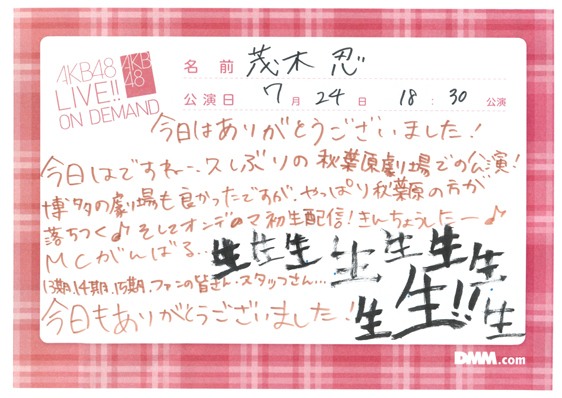 AKB48
LIVE!!
ON DEMAND
AKB
48
名前 茂木 忍
公演日 7月24日 18:30公演
今日はありがとうございました!
今日はですねー、久しぶりの秋葉原劇場での公演!
博多の劇場も良かったですが、やっぱり秋葉原の方が
落ちつく♪そしてオンデのマ初生配信!きんちょうしたー♪
MCがんばる…
13期、14期、15期、ファンの皆さん、スタッフさん…
今日もありがとうございました!
生生生 生 生 生 生
生 生!! 生
DMM.com